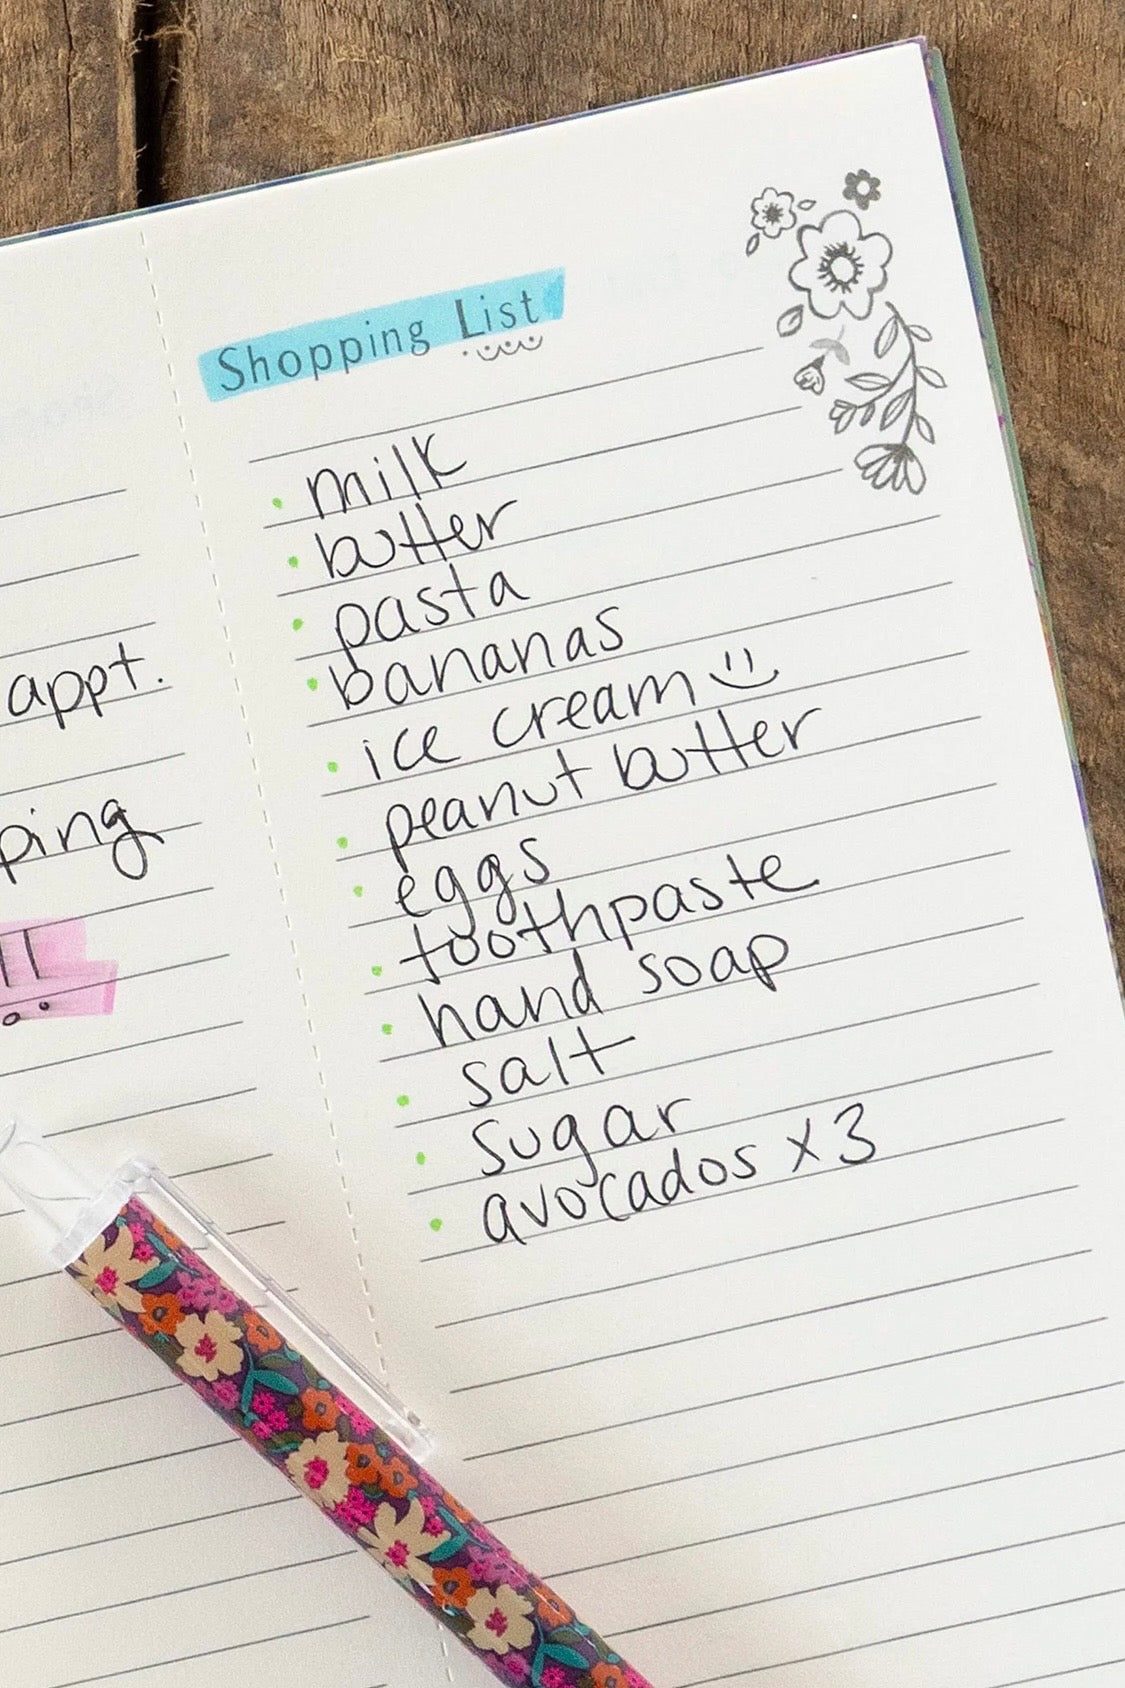 appt.
ping
Shopping List
milk
butter
pasta
bananas
ice cream
peanut butter
eggs
toothpaste
hand soap
salt
sugar
avocados x 3